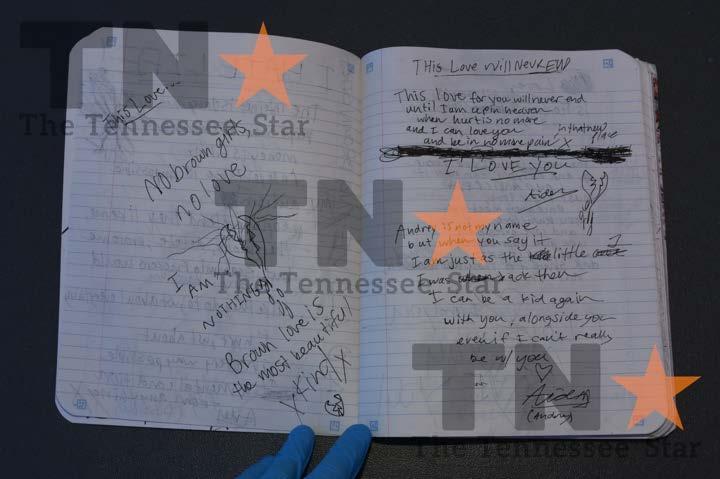 This Love...
No brown girls,
no love
I
AM
NOTHING
Brown love is
the most beautiful
X King X
THis Love Will NevR END
This love for you will never end
until I am up in heaven
when hurt is no more
and I can love you
and be in no more pain in that new place X
I LOVE YOU
Aiden
Audrey is not my name
but when you say it
I am just as the little
I was back then
I can be a kid again
with you, alongside you
even if I can't really
be w/ you
Aiden
(Audrey)
TN
The Tennessee Star
TN
The Tennessee Star
TN
The Tennessee Star